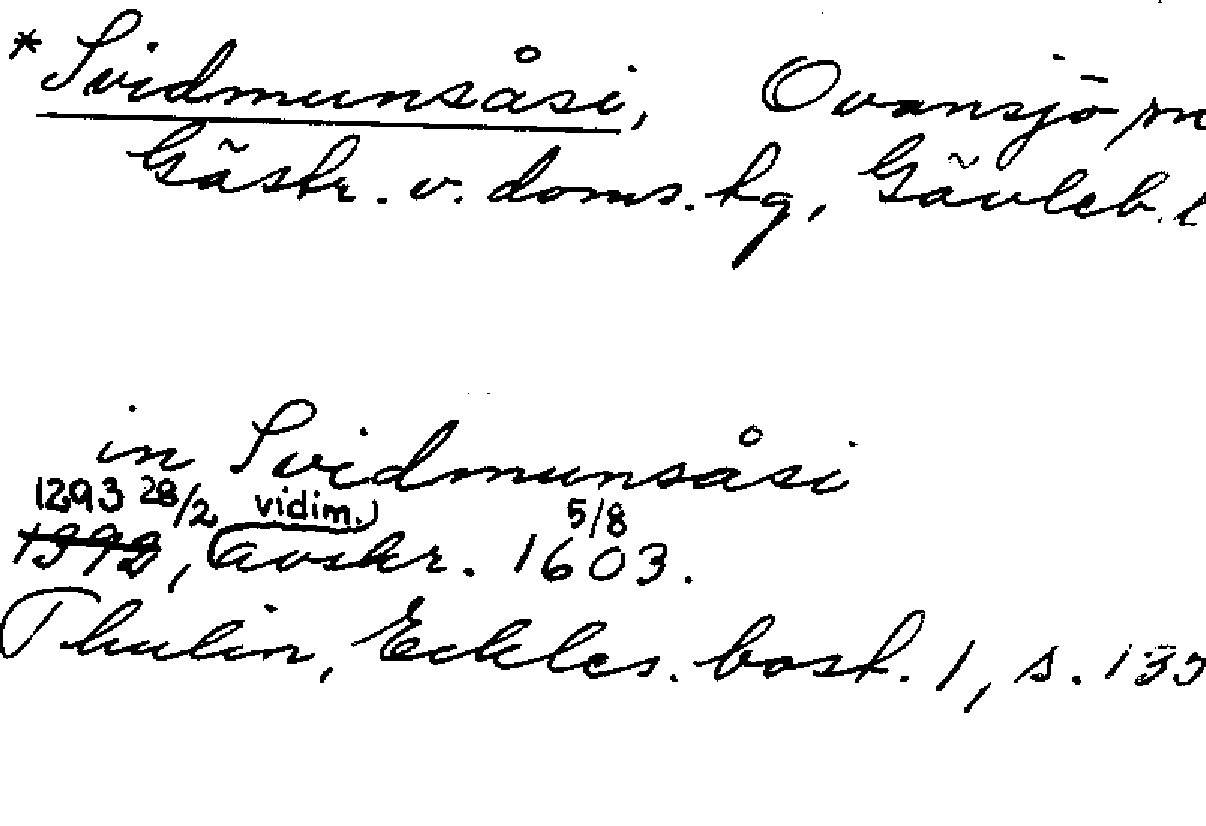 *Svidmunsåsi, Ovansjö
Gästr. v. doms. hg, Gävleb. l
in Svidmunsåsi
1293 28/2 vidim. 5/8
1392, avskr. 1603.
Thulin, Eckles. bost. 1, s. 135